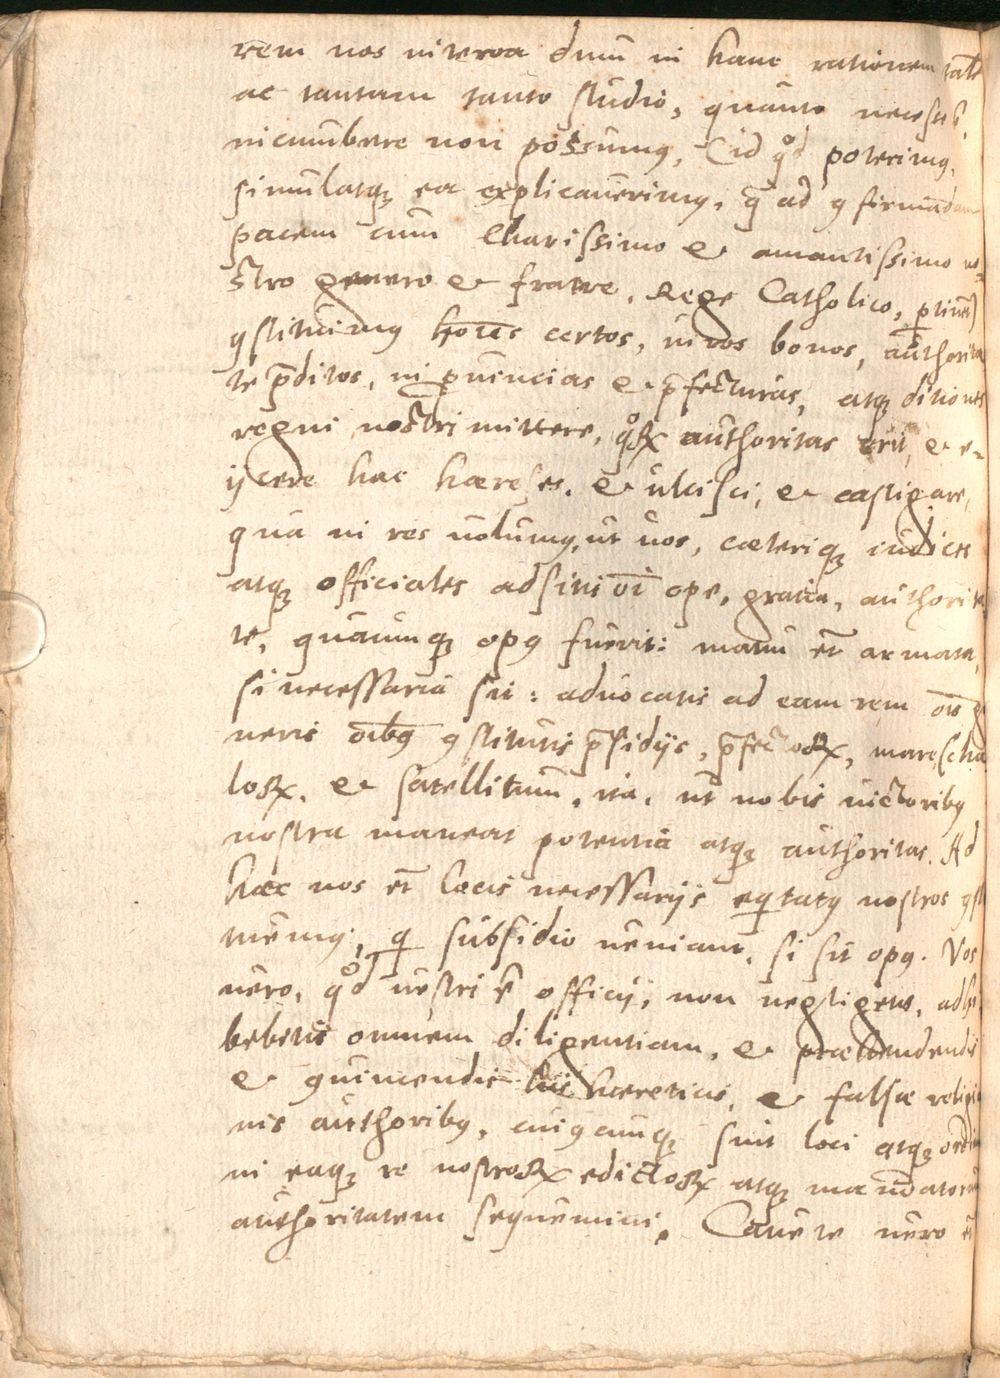 rem nos interea dum in hanc rationem tale
ac tantam tanto studio, quanto necesse ē,
incumbere non possumus, id qd poterimus,
simulatque ea explicauerimus, q̄ ad cōfirmandam
pacem cum Charissimo et amantissimo no-
stro genero et fratre, Rege Catholico, ptinēt
cōstituimus hoīes certos, uiros bonos, authorita
te p̄ditos, in puincias et p̄fecturas, atque ditiones
regni nostri mittere, qorum authoritas erit, et e-
ijcere has hæreses, et ulcisci, et castigare,
qua in re uolumus, ut uos, cæterique iudices
atque officiales adsitis oī ope, gratia, authorita
te, quacunque opus fuerit: manu et armata,
si necessaria sit: aduocatis ad eam rem ois ge
neris oībus cōstitutis p̄sidijs, p̄fectorum, marescha
lorum, et satellitum, ita, ut nobis uictoribus
nostra maneat potentia atque authoritas. Ad
hæc nos et locis necessarijs eqitatus nostros cōsti
tuemus, q subsidio ueniant, si sit opus. Vos
uero, qd uestri ē officij, non negligetis, adhi
bebitis omnem diligentiam, et præhendendis
et cōuincendis his hæreticis, et falsæ religio
nis authoribus, cuiuscunque sint loci atque ordi
ni eaque re nostrorum edictorum atque mandatorum
authoritatem sequemini. Cauete uero